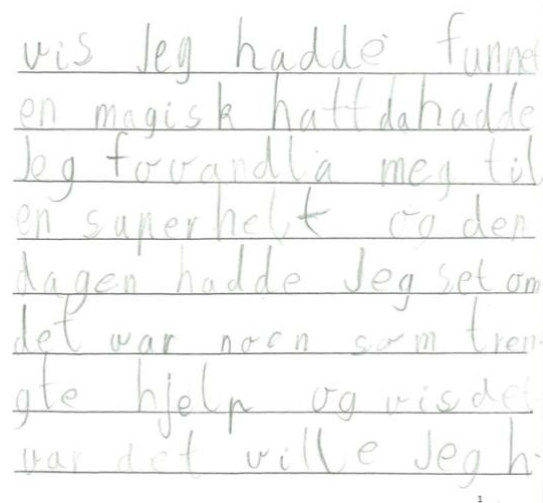 vis Jeg hadde funnet
en magisk hatt da hadde
Jeg forvandla meg til
en superhelt og den
dagen hadde Jeg set om
det var noen som tren-
gte hjelp og vis det
var det ville Jeg h-
1